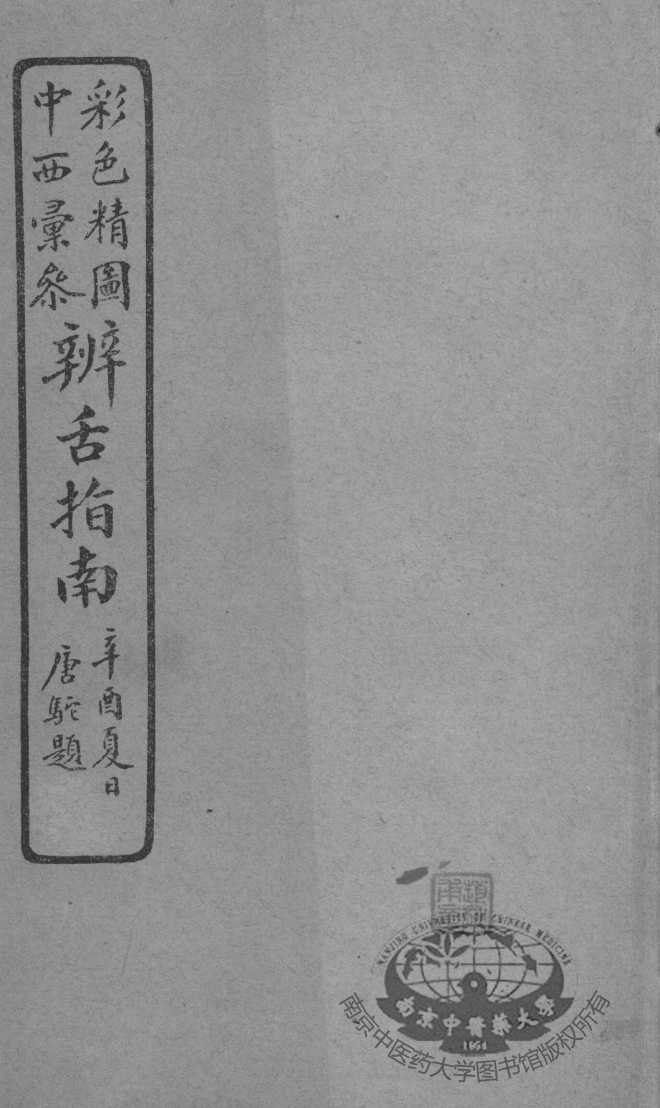 彩色精圖
中西彙參
辨舌指南
辛酉夏日
唐駝題
NANJING UNIVERSITY OF CHINESE MEDICINE
南京中醫藥大學
1954
南京中医药大学图书馆版权所有